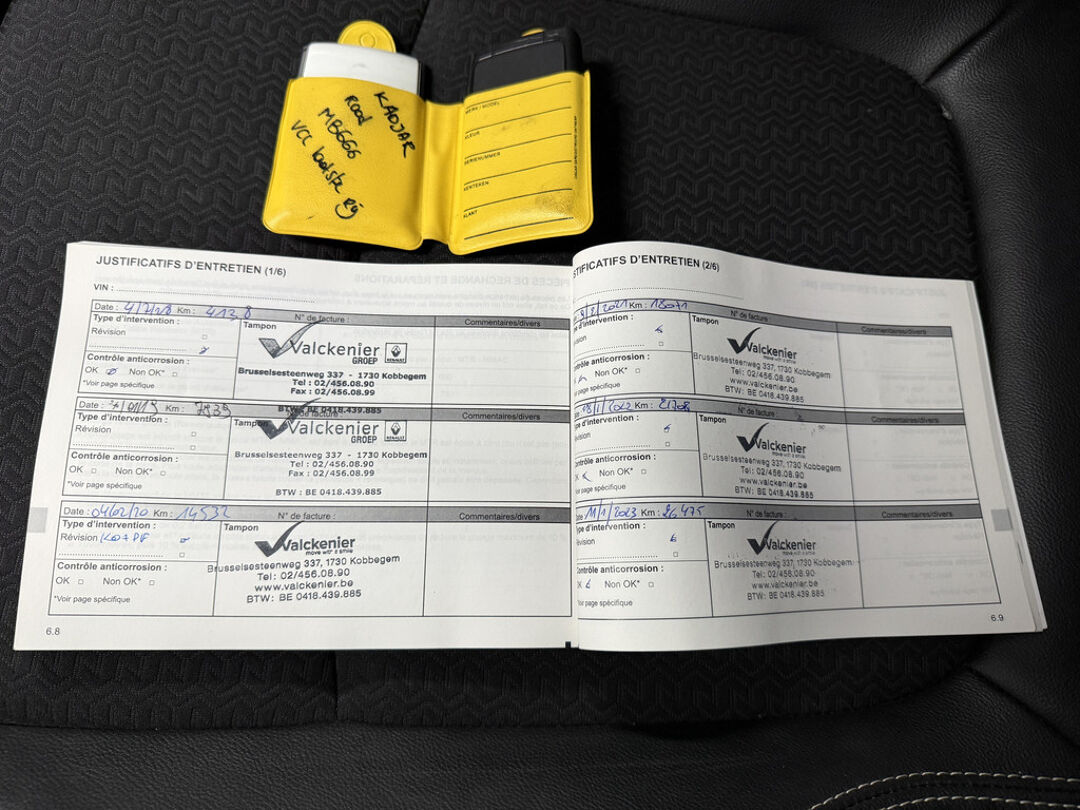 KADJAR
Rood
MB666
VCC
MERK / MODEL
KLEUR
SERIENUMMER
KENTEKEN
KLANT
JUSTIFICATIFS D'ENTRETIEN (1/6)
VIN :
Date : Km : 4138 N° de facture :
Type d'intervention : Tampon Commentaires/divers
Révision
Valckenier
GROEP RENAULT
Contrôle anticorrosion :
OK Non OK*
*Voir page spécifique
Brusselsesteenweg 337 - 1730 Kobbegem
Tel : 02/456.08.90
Fax : 02/456.08.99
BTW : BE 0418.439.885
Date : Km : 7939 de facture :
Type d'intervention : Tampon Commentaires/divers
Révision
Valckenier
GROEP RENAULT
Contrôle anticorrosion :
OK Non OK*
*Voir page spécifique
Brusselsesteenweg 337 - 1730 Kobbegem
Tel : 02/456.08.90
Fax : 02/456.08.99
BTW : BE 0418.439.885
Date : 04/02/20 Km : 14532 N° de facture : Commentaires/divers
Type d'intervention : Tampon
Révision
Valckenier
move with a smile
Contrôle anticorrosion :
OK Non OK*
*Voir page spécifique
Brusselsesteenweg 337, 1730 Kobbegem
Tel: 02/456.08.90
www.valckenier.be
BTW: BE 0418.439.885
6.8
STIFICATIFS D'ENTRETIEN (2/6)
Km : 18071 N° de facture :
ype d'intervention : Tampon Commentaires/divers
évision
Valckenier
move with a smile
ontrôle anticorrosion :
Non OK*
oir page spécifique
Brusselsesteenweg 337, 1730 Kobbegem
Tel: 02/456.08.90
www.valckenier.be
BTW: BE 0418.439.885
18/1/2022 Km : 21708 N° de facture :
ype d'intervention : Tampon Commentaires/divers
évision
Valckenier
move with a smile
ontrôle anticorrosion :
Non OK*
oir page spécifique
Brusselsesteenweg 337, 1730 Kobbegem
Tel: 02/456.08.90
www.valckenier.be
BTW: BE 0418.439.885
ate : 11/1/2023 Km : 26475 N° de facture : Commentaires/divers
ype d'intervention : Tampon
évision
Valckenier
move with a smile
ontrôle anticorrosion :
Non OK*
oir page spécifique
Brusselsesteenweg 337, 1730 Kobbegem
Tel: 02/456.08.90
www.valckenier.be
BTW: BE 0418.439.885
6.9